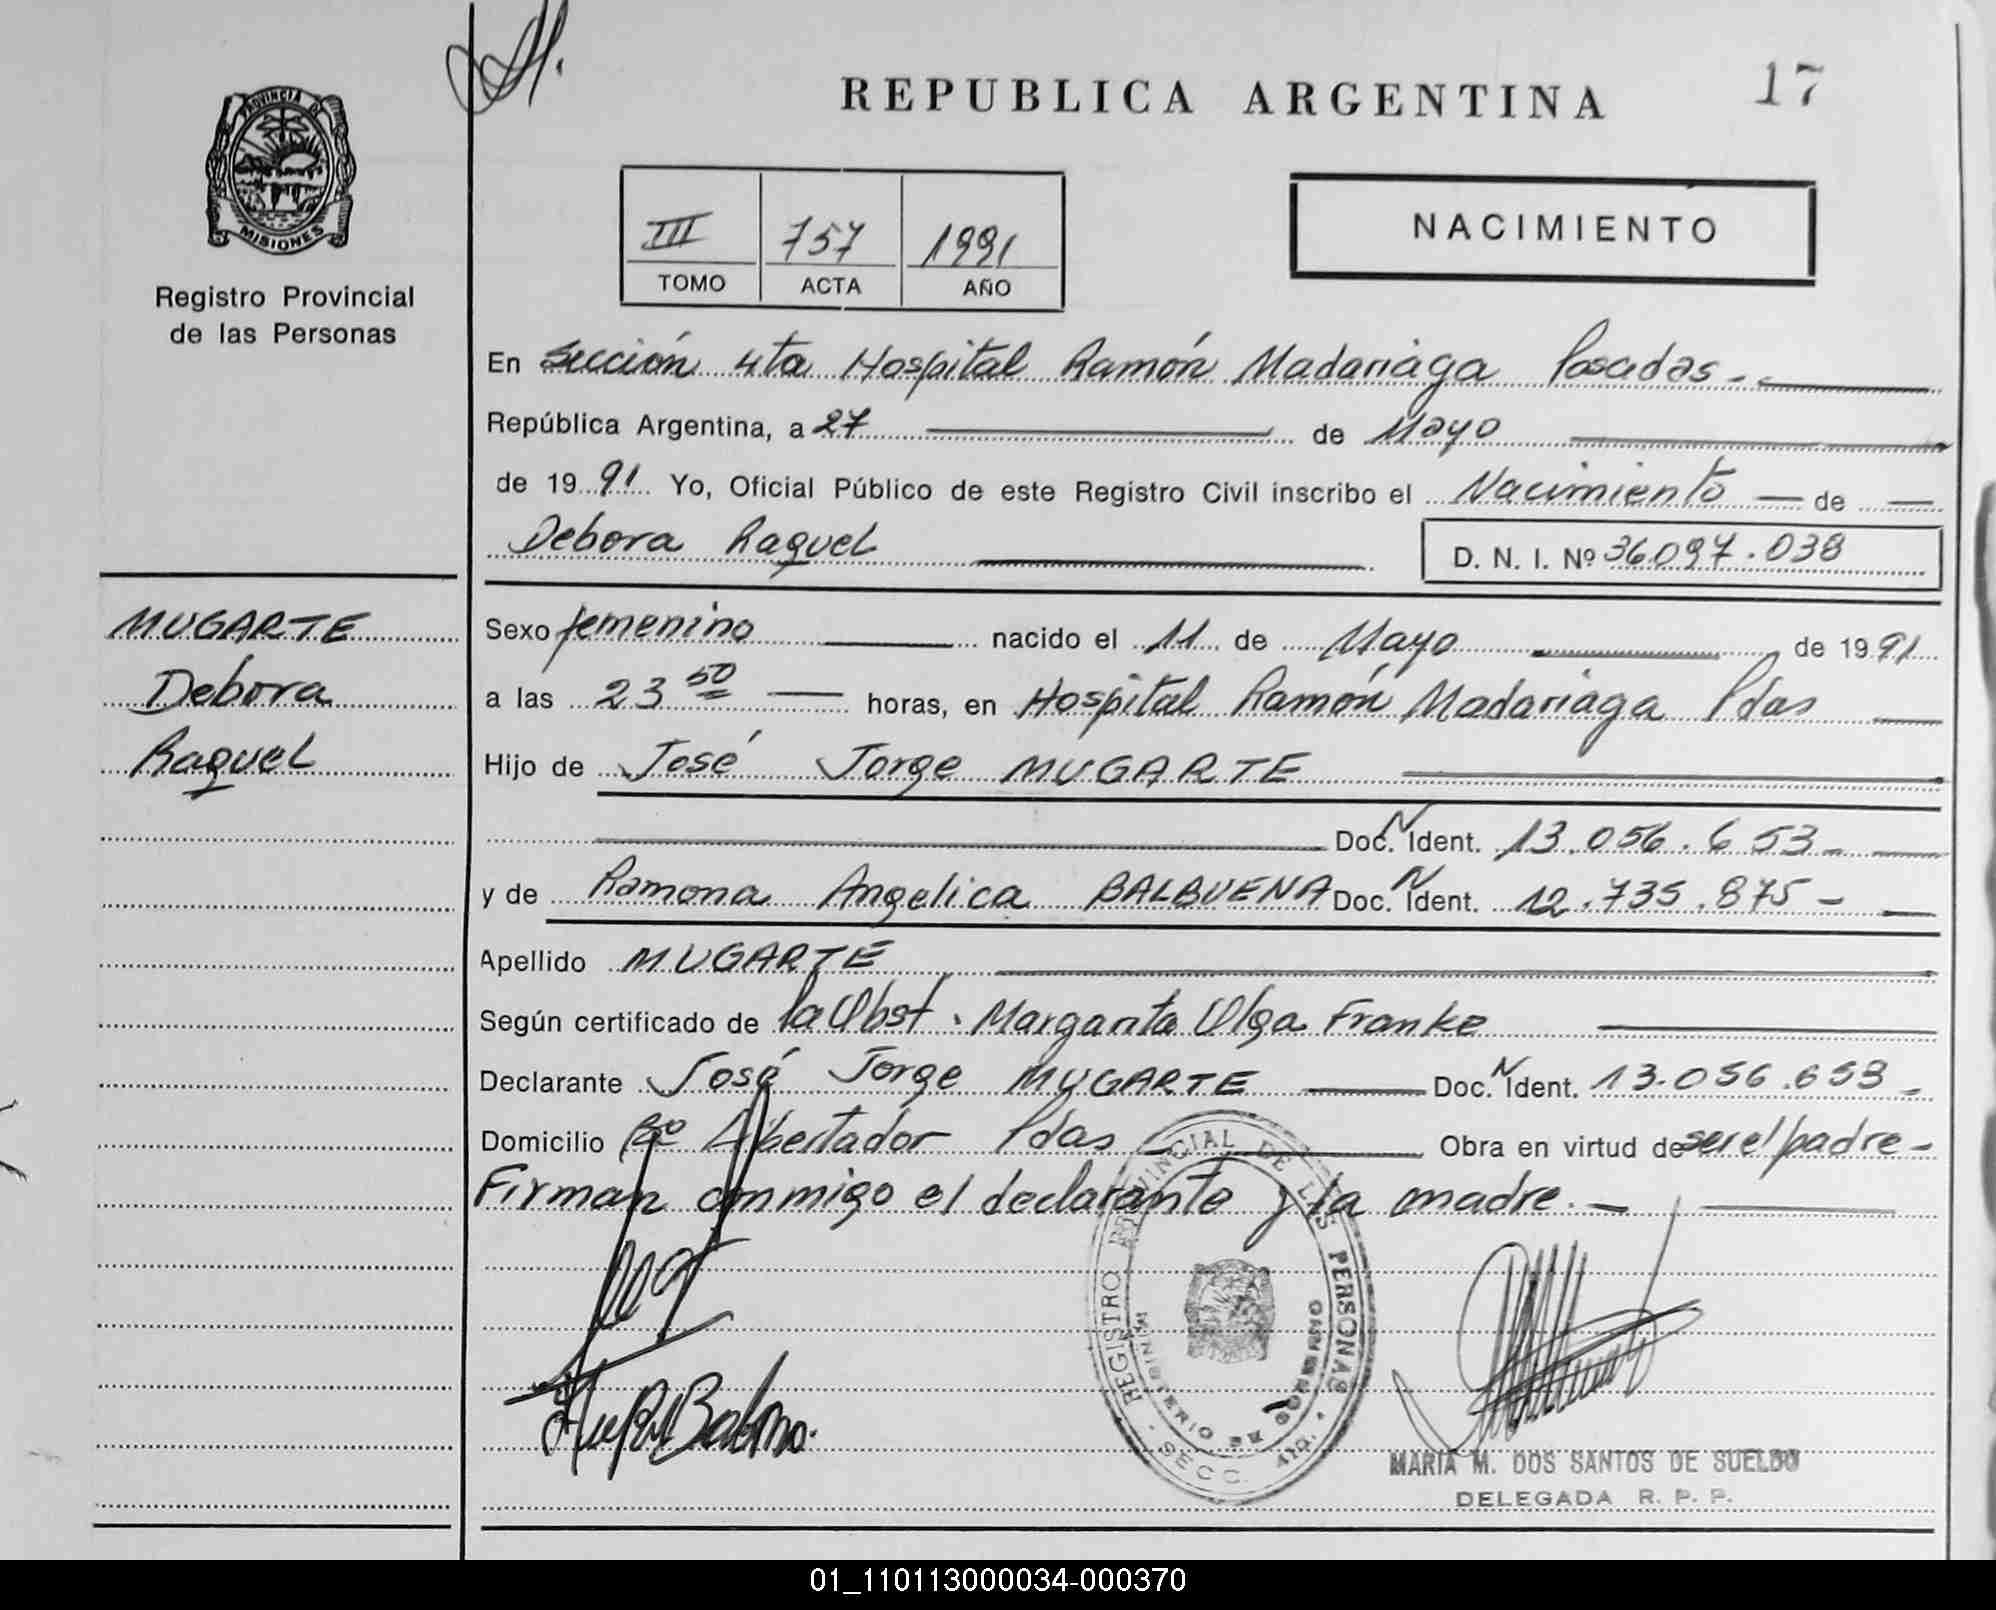 REPUBLICA ARGENTINA
17
PROVINCIA DE
MISIONES
Registro Provincial
de las Personas
III 757 1991
TOMO ACTA AÑO
NACIMIENTO
En Sección 4ta Hospital Ramón Madariaga Posadas.-
República Argentina, a 27 de Mayo
de 1991 Yo, Oficial Público de este Registro Civil inscribo el Nacimiento de
Debora Raquel
D. N. I. Nº 36.097.038
MUGARTE
Debora
Raquel
Sexo femenino nacido el 11 de Mayo de 1991
a las 23 50 horas, en Hospital Ramón Madariaga Pdas
Hijo de José Jorge MUGARTE
Doc. N Ident. 13.056.653-
y de Ramona Angelica BALBUENA Doc. N Ident. 12.735.875-
Apellido MUGARTE
Según certificado de la Obst. Margarita Olga Franke
Declarante José Jorge MUGARTE Doc. N Ident. 13.056.653-
Domicilio Bº Libertador Pdas Obra en virtud de ser el padre-
Firman conmigo el declarante y la madre.-
REGISTRO PROVINCIAL DE LAS PERSONAS
MINISTERIO DE GOBIERNO
SECC. 4TA.
MARIA M. DOS SANTOS DE SUELDO
DELEGADA R. P. P.
01_110113000034-000370